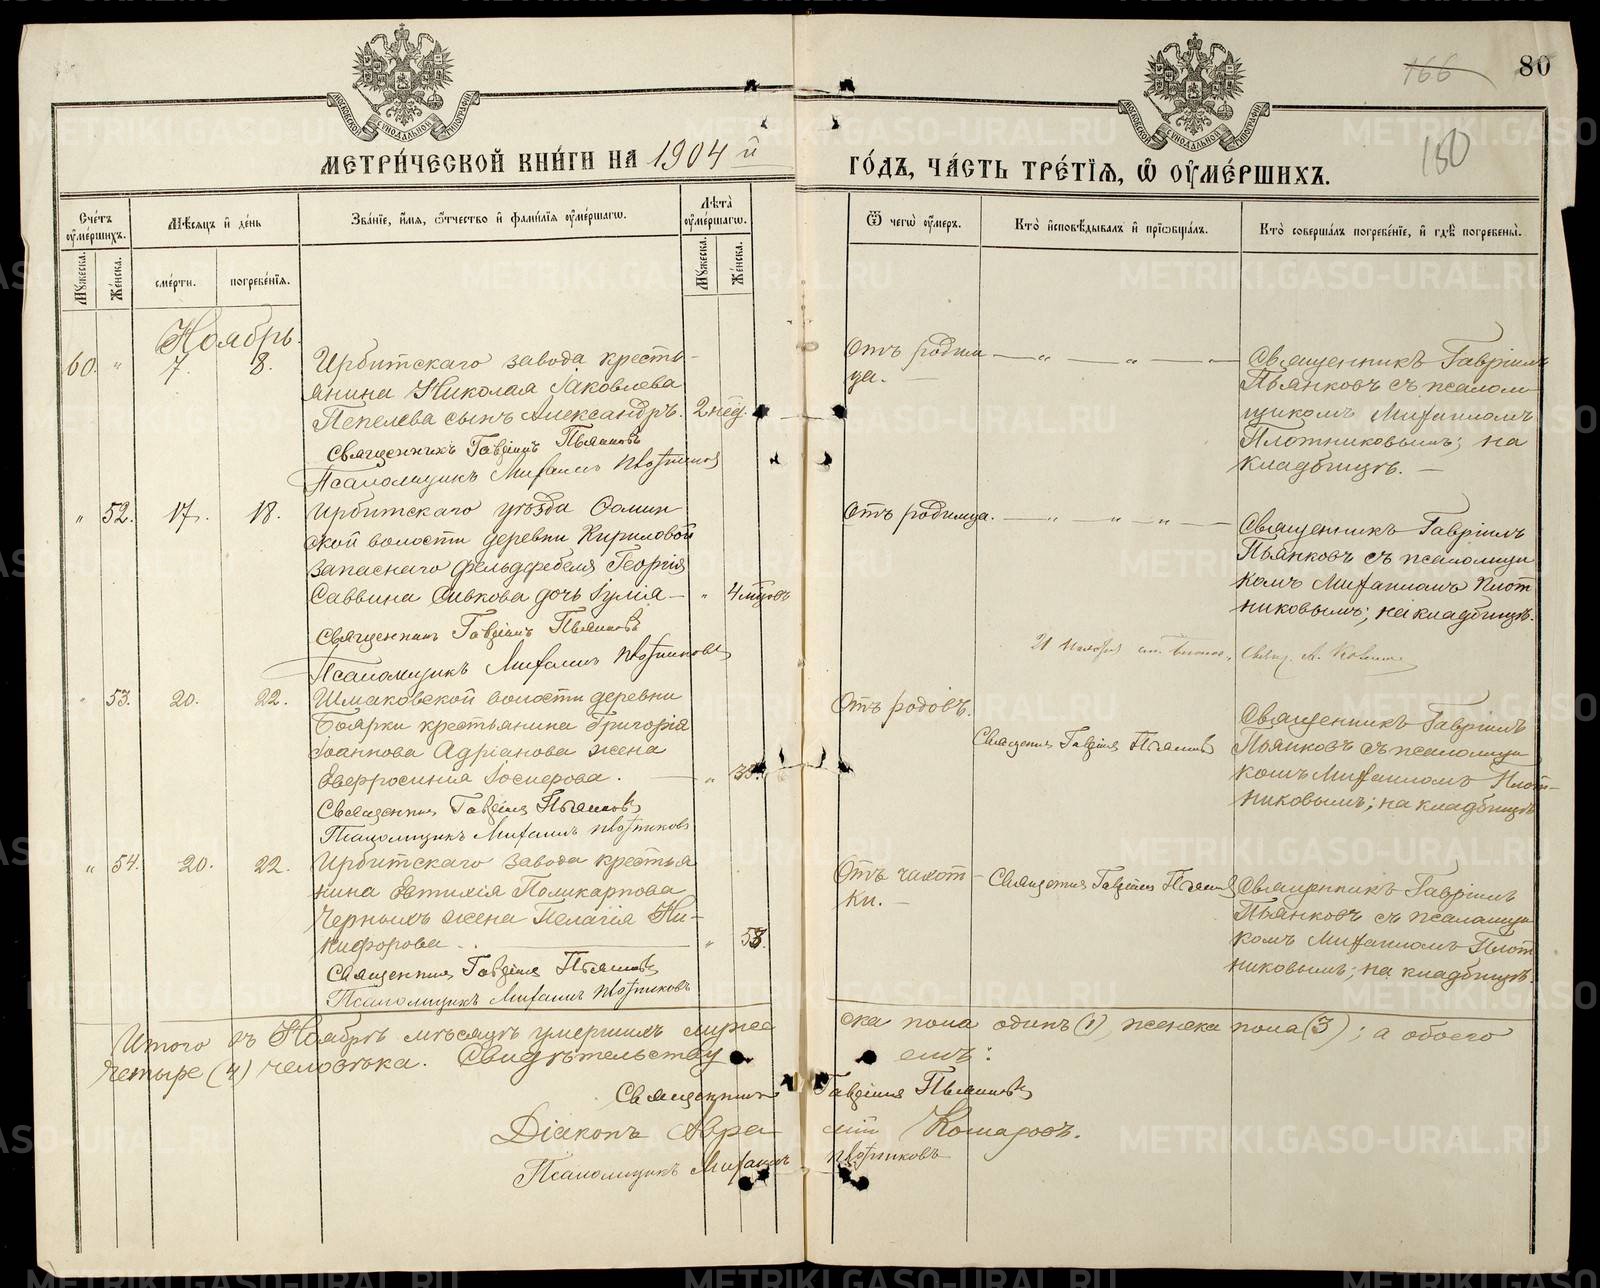 166
80
180
МЕТРИ́ЧЕСКОЙ КНИ́ГИ НА 1904 й
ГО́ДЪ, ЧА́СТЬ ТРЕ́ТІѦ, Ѡ҆ ОУ҆МЕ́РШИХЪ.
Сче́тъ оу҆ме́ршихъ.
Мѣ́сяцъ и҆ де́нь
Зва́ніе, и҆́мя, ѻ҆́тчество и҆ фами́лія оу҆ме́ршагѡ.
Лѣ́та оу҆ме́ршагѡ.
Ѿ чегѡ̀ оу҆́меръ.
Кто̀ и҆сповѣ́дывалъ и҆ прїѡбща́лъ.
Кто̀ соверша́лъ погребе́ніе, и҆ гдѣ̀ погребены̀.
Мꙋ́жеска.
Же́нска.
сме́рти.
погребе́нія.
Мꙋ́жеска.
Же́нска.
Ноябрь.
60. " 7. 8.
Ирбитскаго завода кресть-
янина Николая Іаковлева
Пепелева сынъ Александръ. 2 нед.
Священникъ Гавріилъ Пьянковъ
Псаломщикъ Михаилъ Плотниковъ
Отъ родим
ца. —
— " — " — " —
Священникъ Гавріилъ
Пьянковъ съ псалом
щикомъ Михаиломъ
Плотниковымъ; на
кладбищѣ. —
" 52. 17. 18.
Ирбитскаго уѣзда
ской волости деревни Кириловой
запаснаго фельдфебеля Георгія
Саввина Сивкова дочь Іулія — " 4 мцовъ
Священникъ Гавріилъ Пьянковъ
Псаломщикъ Михаилъ Плотниковъ
Отъ родимца. — " — " — " —
Священникъ Гавріилъ
Пьянковъ съ псаломщи
комъ Михаиломъ Плот
никовымъ; на кладбищѣ.
21 Ноября
" 53. 20. 22.
Шмаковской волости деревни
Боярки крестьянина Григорія
Іоаннова Адріанова жена
Евфросинія Іосифова. — "
Священникъ Гавріилъ Пьянковъ
Псаломщикъ Михаилъ Плотниковъ
Отъ родовъ.
Священникъ Гавріилъ Пьянковъ
Священникъ Гавріилъ
Пьянковъ съ псаломщи
комъ Михаиломъ Плот-
никовымъ; на кладбищѣ
" 54. 20. 22.
Ирбитскаго завода крестья
нина Евтихія Поликарпова
Черныхъ жена Пелагія Ни-
кифорова — " 58.
Священникъ Гавріилъ Пьянковъ
Псаломщикъ Михаилъ Плотниковъ
Отъ чахот-
ки. —
Священникъ Гавріилъ Пьянковъ
Священникъ Гавріилъ
Пьянковъ съ псаломщи
комъ Михаиломъ Плот
никовымъ; на кладбищѣ.
Итого въ Ноябрѣ мѣсяцѣ умершихъ мужес
ска пола одинъ (1), женска пола (3); а обоего
четыре (4) человѣка. Свидѣтельству
емъ:
Священникъ Гавріилъ Пьянковъ
Діаконъ Авра амій Комаровъ.
Псаломщикъ Михаилъ Плотниковъ
METRIKI.GASO-URAL.RU